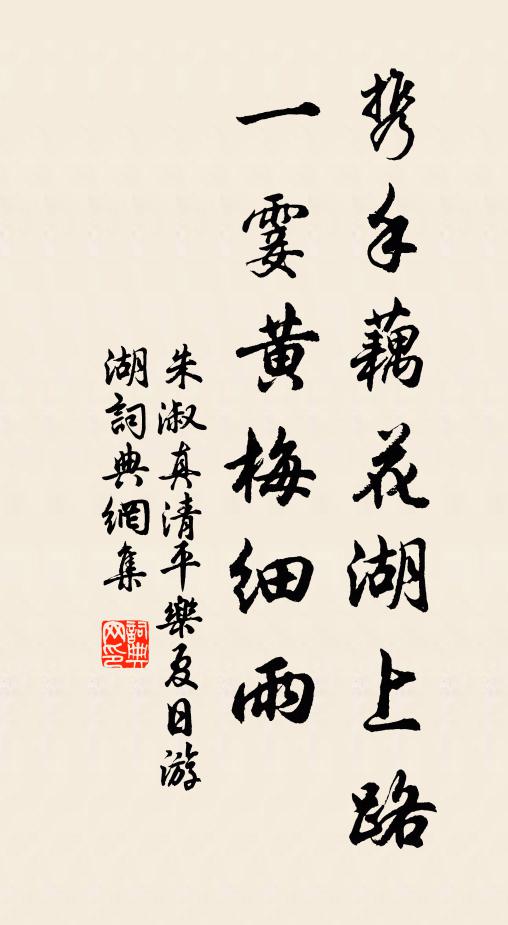 携手藕花湖上路
一霎黃梅細雨
朱淑真清平樂夏日游
湖詞典網集
詞典
网印